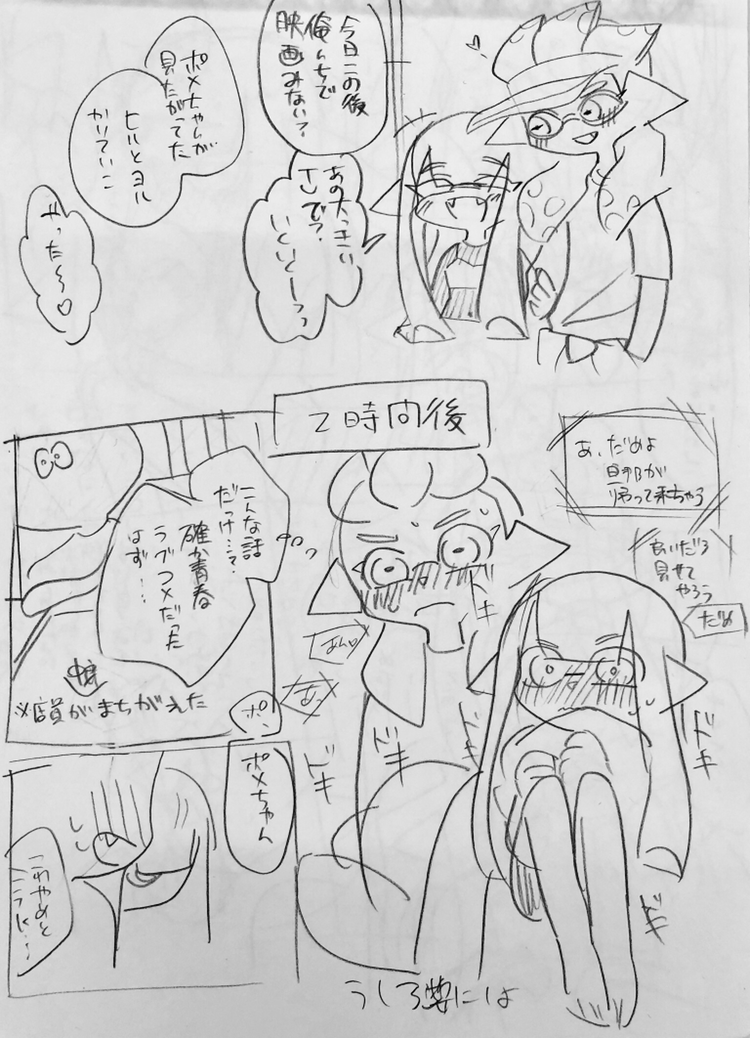 今日この後
俺んちで
映画みない?
あの大っきい
TVで?
いくいくーっっ
ポメちゃんが
見たがってた
ヒルとヨル
かりていこ
やった〜♡
2時間後
あ、だめよ
旦那が
帰って来ちゃう
見せて
やろう
だめ
こんな話
だっけ…?
確か青春
ラブコメだった
はず…
※店員がまちがえた
ドキ
あっ
ドキ
ドキ
ドキ
ドキ
ドキ
ポ
ポメちゃん
これやめと
こうか…
うしろ姿には